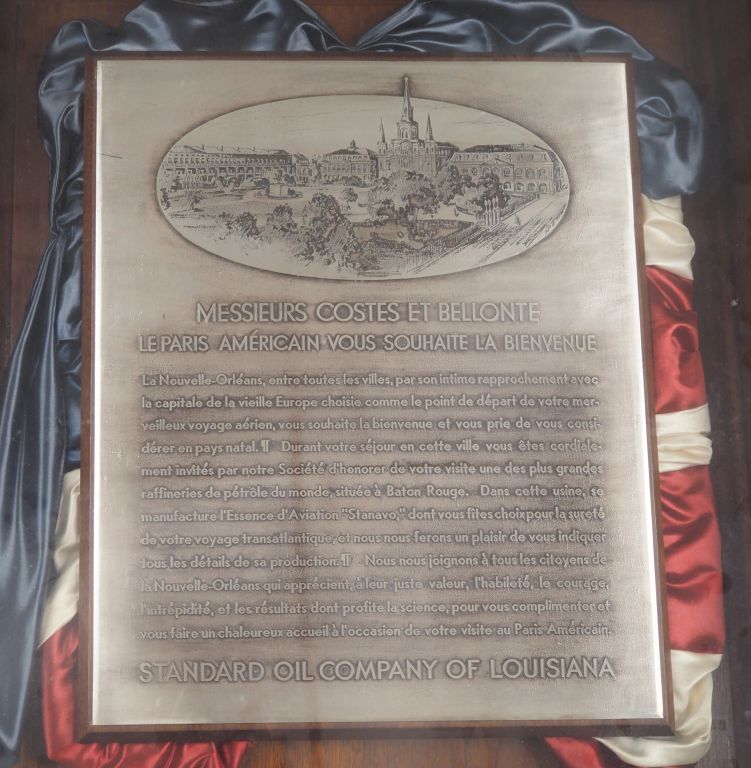 MESSIEURS COSTES ET BELLONTE
LE PARIS AMÉRICAIN VOUS SOUHAITE LA BIENVENUE
La Nouvelle-Orléans, entre toutes les villes, par son intime rapprochement avec
la capitale de la vieille Europe choisie comme le point de départ de votre mer-
veilleux voyage aérien, vous souhaite la bienvenue et vous prie de vous consi-
dérer en pays natal. ¶ Durant votre séjour en cette ville vous êtes cordiale-
ment invités par notre Société d'honorer de votre visite une des plus grandes
raffineries de pétrôle du monde, située à Baton Rouge. Dans cette usine, se
manufacture l'Essence d'Aviation "Stanavo," dont vous fîtes choix pour la sureté
de votre voyage transatlantique, et nous nous ferons un plaisir de vous indiquer
tous les détails de sa production. ¶ Nous nous joignons à tous les citoyens de
la Nouvelle-Orléans qui apprécient, à leur juste valeur, l'habileté, le courage,
l'intrépidité, et les résultats dont profite la science, pour vous complimenter et
vous faire un chaleureux accueil à l'occasion de votre visite au Paris Américain.
STANDARD OIL COMPANY OF LOUISIANA